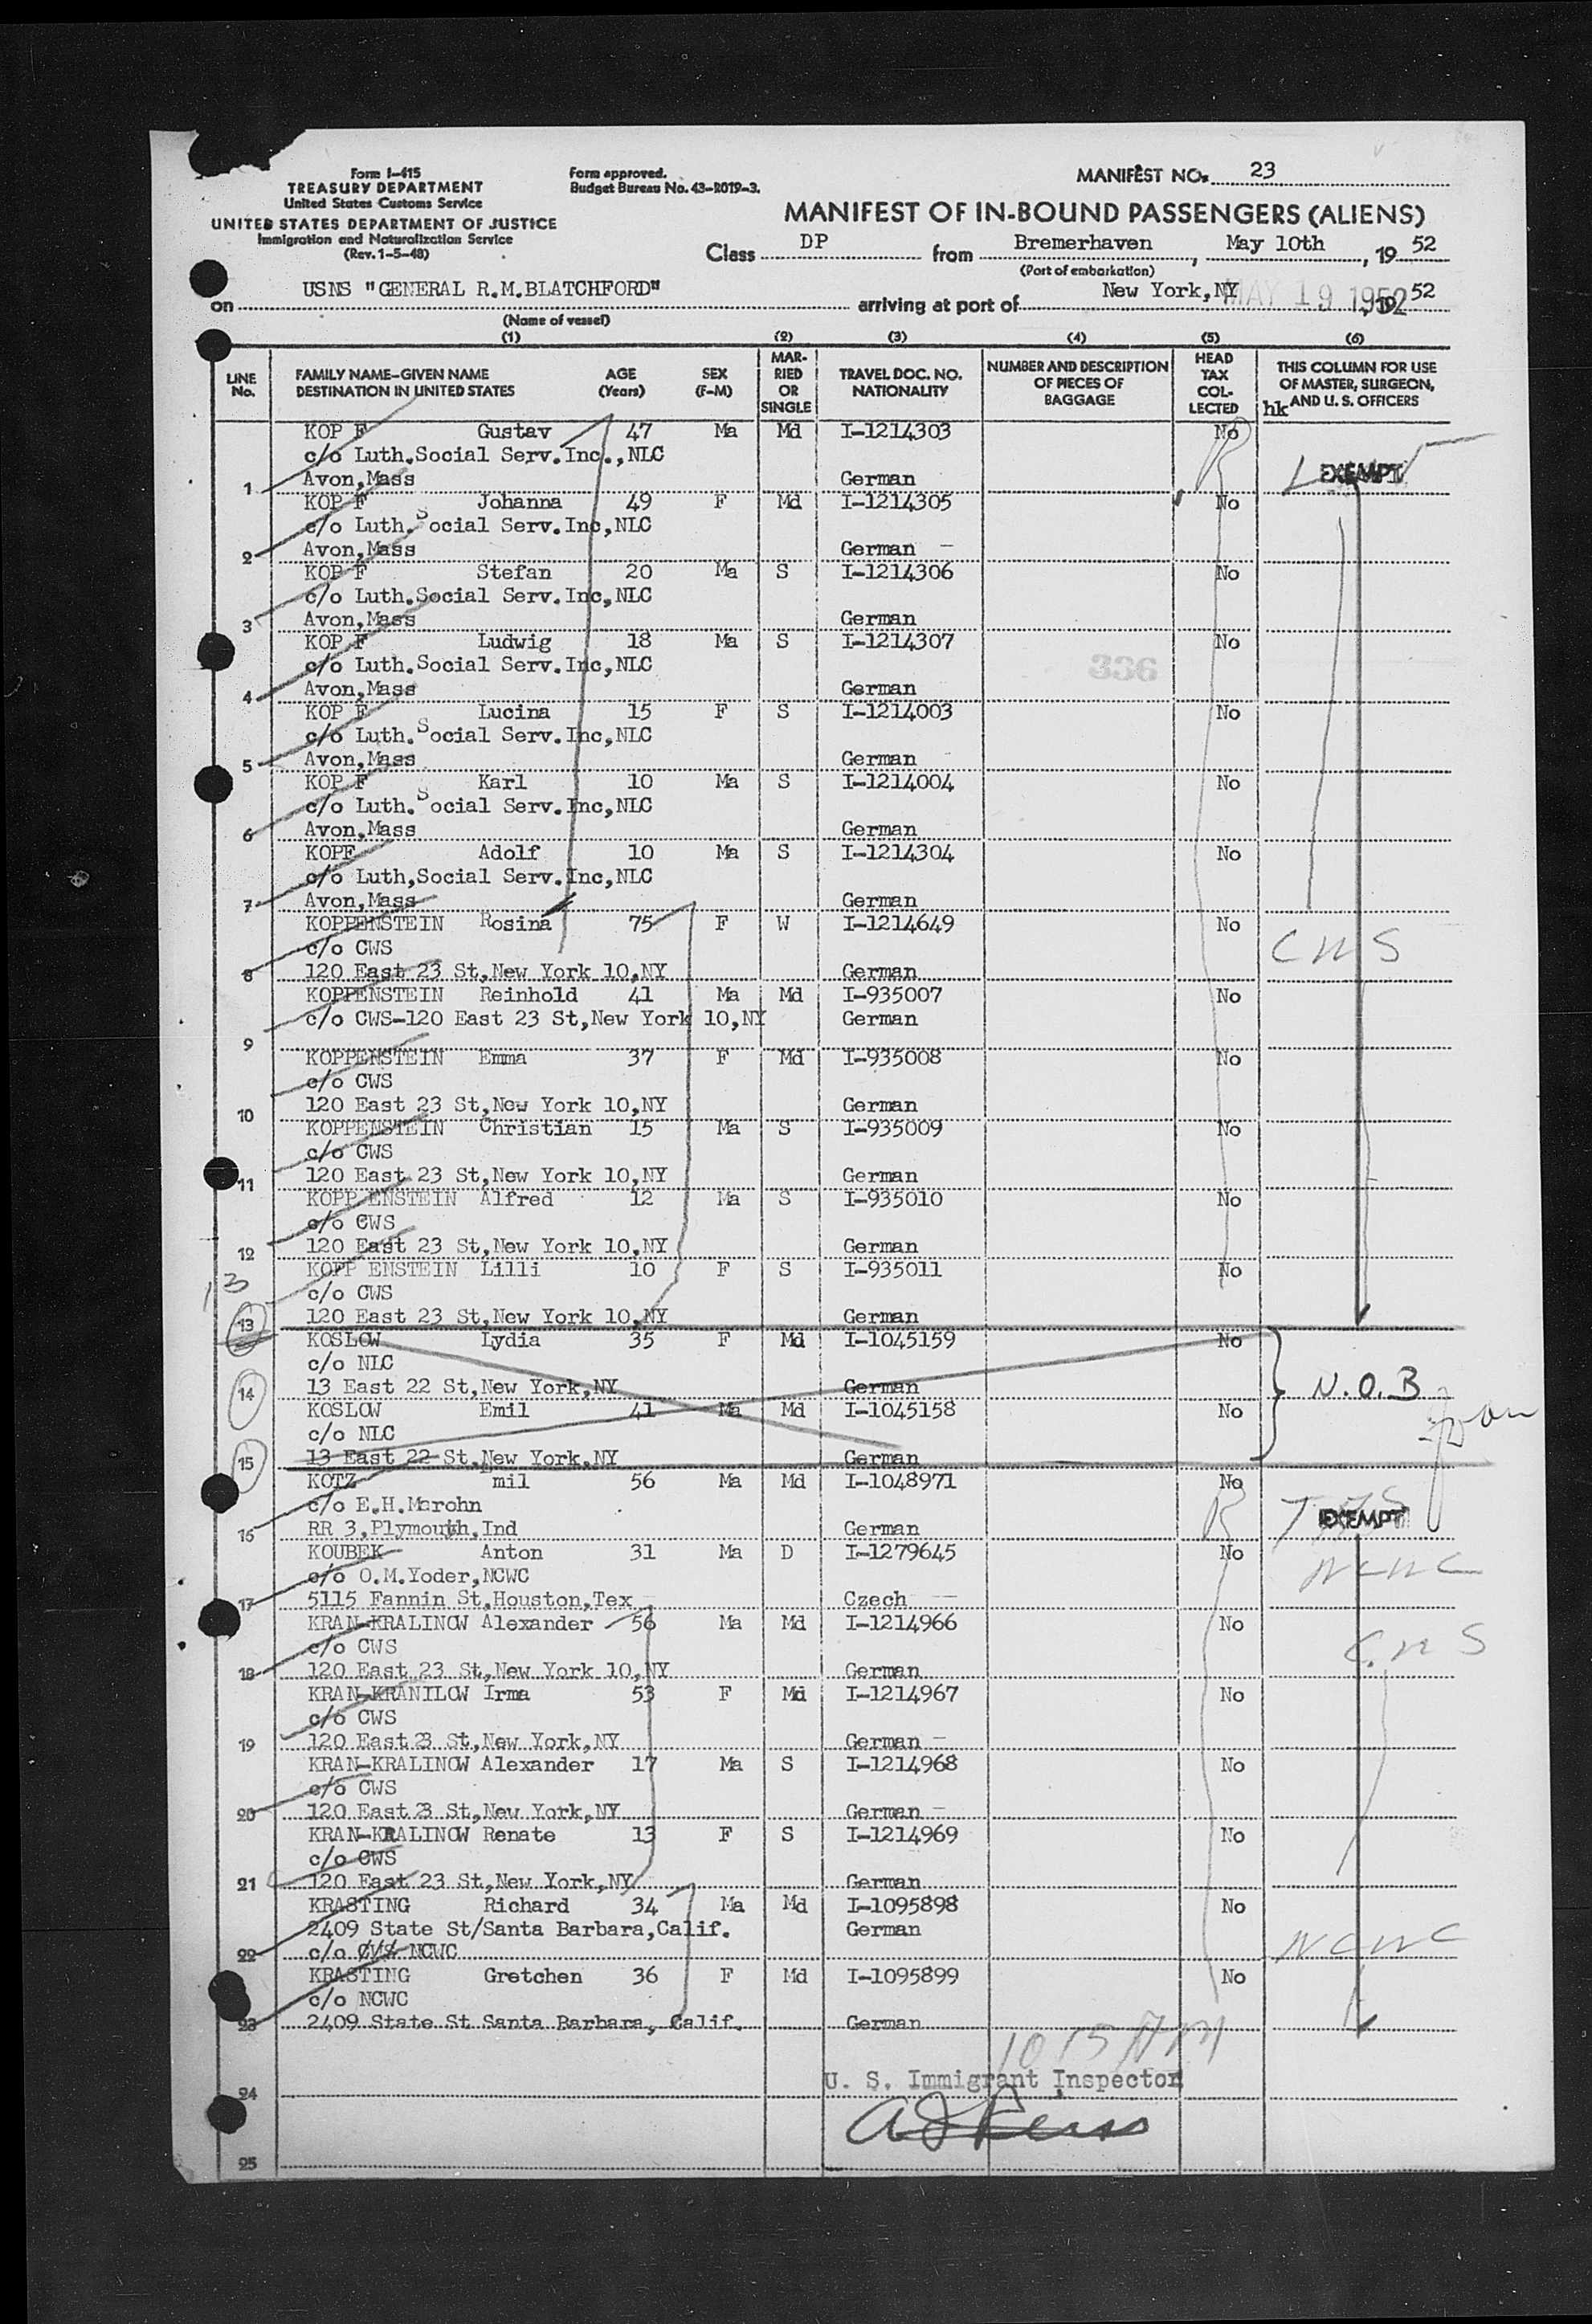 Form I-415
TREASURY DEPARTMENT
United States Customs Service
UNITED STATES DEPARTMENT OF JUSTICE
Immigration and Naturalization Service
(Rev. 1-5-48)
Form approved.
Budget Bureau No. 43-R019-3.
MANIFEST NO. 23
MANIFEST OF IN-BOUND PASSENGERS (ALIENS)
Class DP from Bremerhaven, May 10th, 19 52
(Port of embarkation)
on USNS "GENERAL R.M.BLATCHFORD" arriving at port of New York,NY MAY 19 1952 52
(Name of vessel)
(1) (2) (3) (4) (5) (6)
LINE No.
FAMILY NAME-GIVEN NAME DESTINATION IN UNITED STATES
AGE (Years)
SEX (F-M)
MARRIED OR SINGLE
TRAVEL DOC. NO. NATIONALITY
NUMBER AND DESCRIPTION OF PIECES OF BAGGAGE
HEAD TAX COLLECTED
THIS COLUMN FOR USE OF MASTER, SURGEON, AND U. S. OFFICERS
hk
KOP F Gustav 47 Ma Md I-1214303 No
c/o Luth.Social Serv.Inc.,NLC EXEMPT
1 Avon,Mass German
KOP F Johanna 49 F Md I-1214305 No
c/o Luth.Social Serv.Inc,NLC
2 Avon,Mass German
KOP F Stefan 20 Ma S I-1214306 No
c/o Luth.Social Serv.Inc,NLC
3 Avon,Mass German
KOP F Ludwig 18 Ma S I-1214307 No
c/o Luth.Social Serv.Inc,NLC 336
4 Avon,Mass German
KOP F Lucina 15 F S I-1214003 No
c/o Luth.Social Serv.Inc,NLC
5 Avon,Mass German
KOP F Karl 10 Ma S I-1214004 No
c/o Luth.Social Serv.Inc,NLC
6 Avon,Mass German
KOPF Adolf 10 Ma S I-1214304 No
c/o Luth,Social Serv.Inc,NLC
7 Avon,Mass German
KOPPENSTEIN Rosina 75 F W I-1214649 No
c/o CWS CWS
8 120 East 23 St,New York 10,NY German
KOPPENSTEIN Reinhold 41 Ma Md I-935007 No
c/o CWS-120 East 23 St,New York 10,NY German
9
KOPPENSTEIN Emma 37 F Md I-935008 No
c/o CWS
10 120 East 23 St,New York 10,NY German
KOPPENSTEIN Christian 15 Ma S I-935009 No
c/o CWS
11 120 East 23 St,New York 10,NY German
KOPP ENSTEIN Alfred 12 Ma S I-935010 No
c/o CWS
12 120 East 23 St,New York 10,NY German
KOPP ENSTEIN Lilli 10 F S I-935011 No
13 c/o CWS
13 120 East 23 St,New York 10,NY German
KOSLOW Lydia 35 F Md I-1045159 No
c/o NLC
14 13 East 22 St,New York,NY German N.O.B
KOSLOW Emil 41 Ma Md I-1045158 No
c/o NLC
15 13 East 22 St,New York,NY German
KOTZ mil 56 Ma Md I-1048971 No
c/o E.H.Marohn EXEMPT
16 RR 3,Plymouth,Ind German
KOUBEK Anton 31 Ma D I-1279645 No
c/o O.M.Yoder,NCWC NCWC
17 5115 Fannin St,Houston,Tex Czech
KRAN-KRALINOW Alexander 56 Ma Md I-1214966 No
c/o CWS CWS
18 120 East 23 St,New York 10,NY German
KRAN-KRANILOW Irma 53 F Md I-1214967 No
c/o CWS
19 120 East 23 St,New York,NY German
KRAN-KRALINOW Alexander 17 Ma S I-1214968 No
c/o CWS
20 120 East 23 St,New York,NY German
KRAN-KRALINOW Renate 13 F S I-1214969 No
c/o CWS
21 120 East 23 St,New York,NY German
KRASTING Richard 34 Ma Md I-1095898 No
2409 State St/Santa Barbara,Calif. German
22 c/o CWS NCWC NCWC
KRASTING Gretchen 36 F Md I-1095899 No
c/o NCWC
23 2409 State St Santa Barbara, Calif. German
10 15 AM
U. S. Immigrant Inspector
24
25